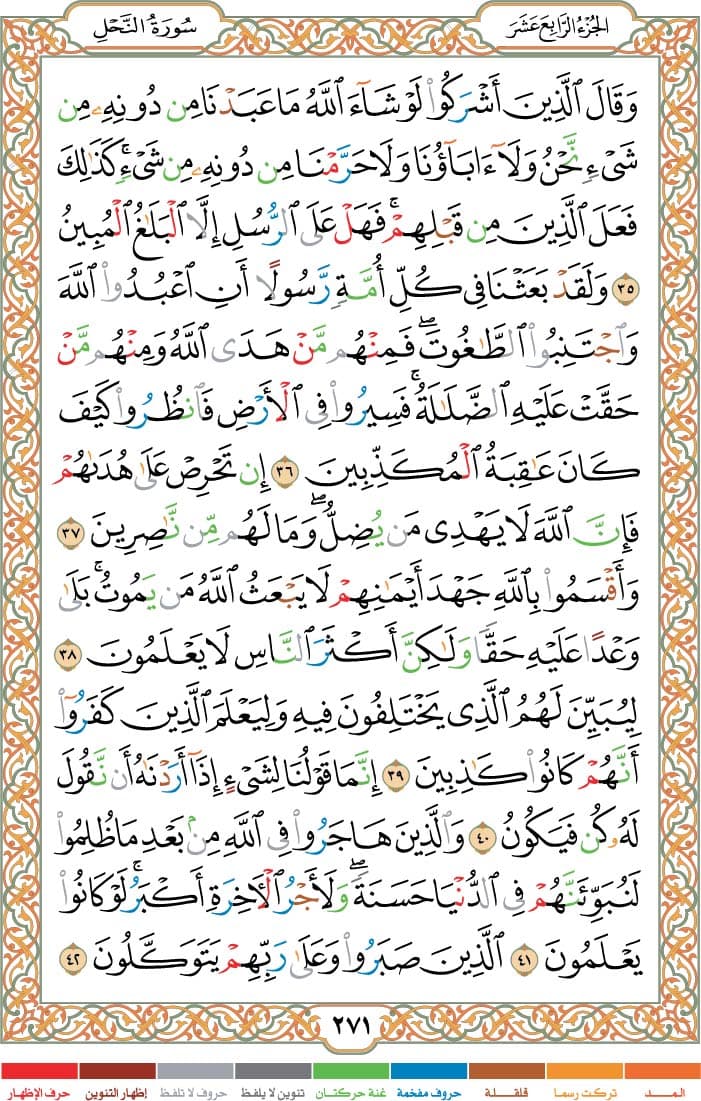 الجُزْءُ الرَّابِعَ عَشَرَ
سُورَةُ النَّحْلِ
وَقَالَ ٱلَّذِينَ أَشْرَكُوا۟ لَوْ شَآءَ ٱللَّهُ مَا عَبَدْنَا مِن دُونِهِۦ مِن
شَىْءٍ نَّحْنُ وَلَآ ءَابَآؤُنَا وَلَا حَرَّمْنَا مِن دُونِهِۦ مِن شَىْءٍ ۚ كَذَٰلِكَ
فَعَلَ ٱلَّذِينَ مِن قَبْلِهِمْ ۚ فَهَلْ عَلَى ٱلرُّسُلِ إِلَّا ٱلْبَلَٰغُ ٱلْمُبِينُ
٣٥ وَلَقَدْ بَعَثْنَا فِى كُلِّ أُمَّةٍ رَّسُولًا أَنِ ٱعْبُدُوا۟ ٱللَّهَ
وَٱجْتَنِبُوا۟ ٱلطَّٰغُوتَ ۖ فَمِنْهُم مَّنْ هَدَى ٱللَّهُ وَمِنْهُم مَّنْ
حَقَّتْ عَلَيْهِ ٱلضَّلَٰلَةُ ۚ فَسِيرُوا۟ فِى ٱلْأَرْضِ فَٱنظُرُوا۟ كَيْفَ
كَانَ عَٰقِبَةُ ٱلْمُكَذِّبِينَ ٣٦ إِن تَحْرِصْ عَلَىٰ هُدَىٰهُمْ
فَإِنَّ ٱللَّهَ لَا يَهْدِى مَن يُضِلُّ ۖ وَمَا لَهُم مِّن نَّٰصِرِينَ ٣٧
وَأَقْسَمُوا۟ بِٱللَّهِ جَهْدَ أَيْمَٰنِهِمْ لَا يَبْعَثُ ٱللَّهُ مَن يَمُوتُ ۚ بَلَىٰ
وَعْدًا عَلَيْهِ حَقًّا وَلَٰكِنَّ أَكْثَرَ ٱلنَّاسِ لَا يَعْلَمُونَ ٣٨
لِيُبَيِّنَ لَهُمُ ٱلَّذِى يَخْتَلِفُونَ فِيهِ وَلِيَعْلَمَ ٱلَّذِينَ كَفَرُوٓا۟
أَنَّهُمْ كَانُوا۟ كَٰذِبِينَ ٣٩ إِنَّمَا قَوْلُنَا لِشَىْءٍ إِذَآ أَرَدْنَٰهُ أَن نَّقُولَ
لَهُۥ كُن فَيَكُونُ ٤٠ وَٱلَّذِينَ هَاجَرُوا۟ فِى ٱللَّهِ مِنۢ بَعْدِ مَا ظُلِمُوا۟
لَنُبَوِّئَنَّهُمْ فِى ٱلدُّنْيَا حَسَنَةً ۖ وَلَأَجْرُ ٱلْءَاخِرَةِ أَكْبَرُ ۚ لَوْ كَانُوا۟
يَعْلَمُونَ ٤١ ٱلَّذِينَ صَبَرُوا۟ وَعَلَىٰ رَبِّهِمْ يَتَوَكَّلُونَ ٤٢
٢٧١
المـــد تركت رسما قلقـــلة حروف مفخمة غنة حركتـان تنوين لا يلفظ حروف لا تلفظ إظهار التنوين حرف الإظهار